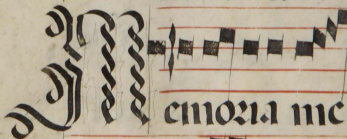 Memoria me